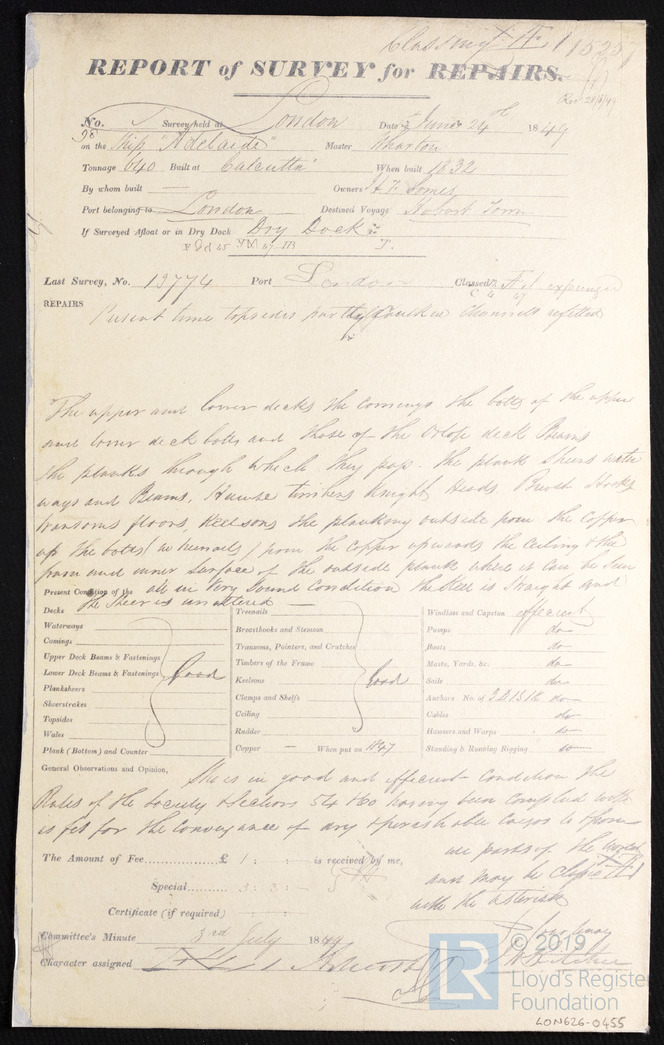 15257
REPORT of SURVEY for REPAIRS.
No. Survey held at London Date June 24th 1849
on the Ship "Adelaide" Master Wharton
Tonnage 640 Built at Calcutta When built 1832
By whom built — Owners Somes
Port belonging to London Destined Voyage Hobart Town
If Surveyed Afloat or in Dry Dock Dry Dock
Last Survey, No. 13774 Port London Classed expunged
REPAIRS Present time topsides partly Caulked Channels refitted
The upper and lower decks the comings the bolts of the upper
and lower deck bolts and those of the Orlop deck Beams
the planks through which they pass. The plank Sheers water
ways and Beams, Hawse timbers Knight Heads Breast Hooks
transoms floors, Keelsons the planking outside from the Copper
up the bolts from the copper upwards the Ceiling & the
fram and inner surface of the outside plank where it can be seen
Present Condition of the all in Very Sound Condition the Keel is Straight and
Decks the Sheer is unaltered —
Waterways
Comings
Upper Deck Beams & Fastenings
Lower Deck Beams & Fastenings Good
Planksheers
Sheerstrakes
Topsides
Wales
Plank (Bottom) and Counter
Treenails
Breasthooks and Stemson
Transoms, Pointers, and Crutches
Timbers of the Frame
Keelsons Good
Clamps and Shelfs
Ceiling
Rudder
Copper — When put on 1847
Windlass and Capstan efficient
Pumps do
Boats do
Masts, Yards, &c. do
Sails do
Anchors No. of do
Cables do
Hawsers and Warps do
Standing & Running Rigging do
General Observations and Opinion, She is in good and efficient Condition the
Rules of the Society Sections 54 & 60 having been complied with
is fit for the Conveyance of dry & perishable Cargo to & from
all parts of the World
and may be
with the asterisk
The Amount of Fee £ 1 : : — is received by me,
Special 3 : 3 : —
Certificate (if required)
Committee's Minute 3rd July 1849
Character assigned
LR © 2019
Lloyd's Register
Foundation
LON626-0455